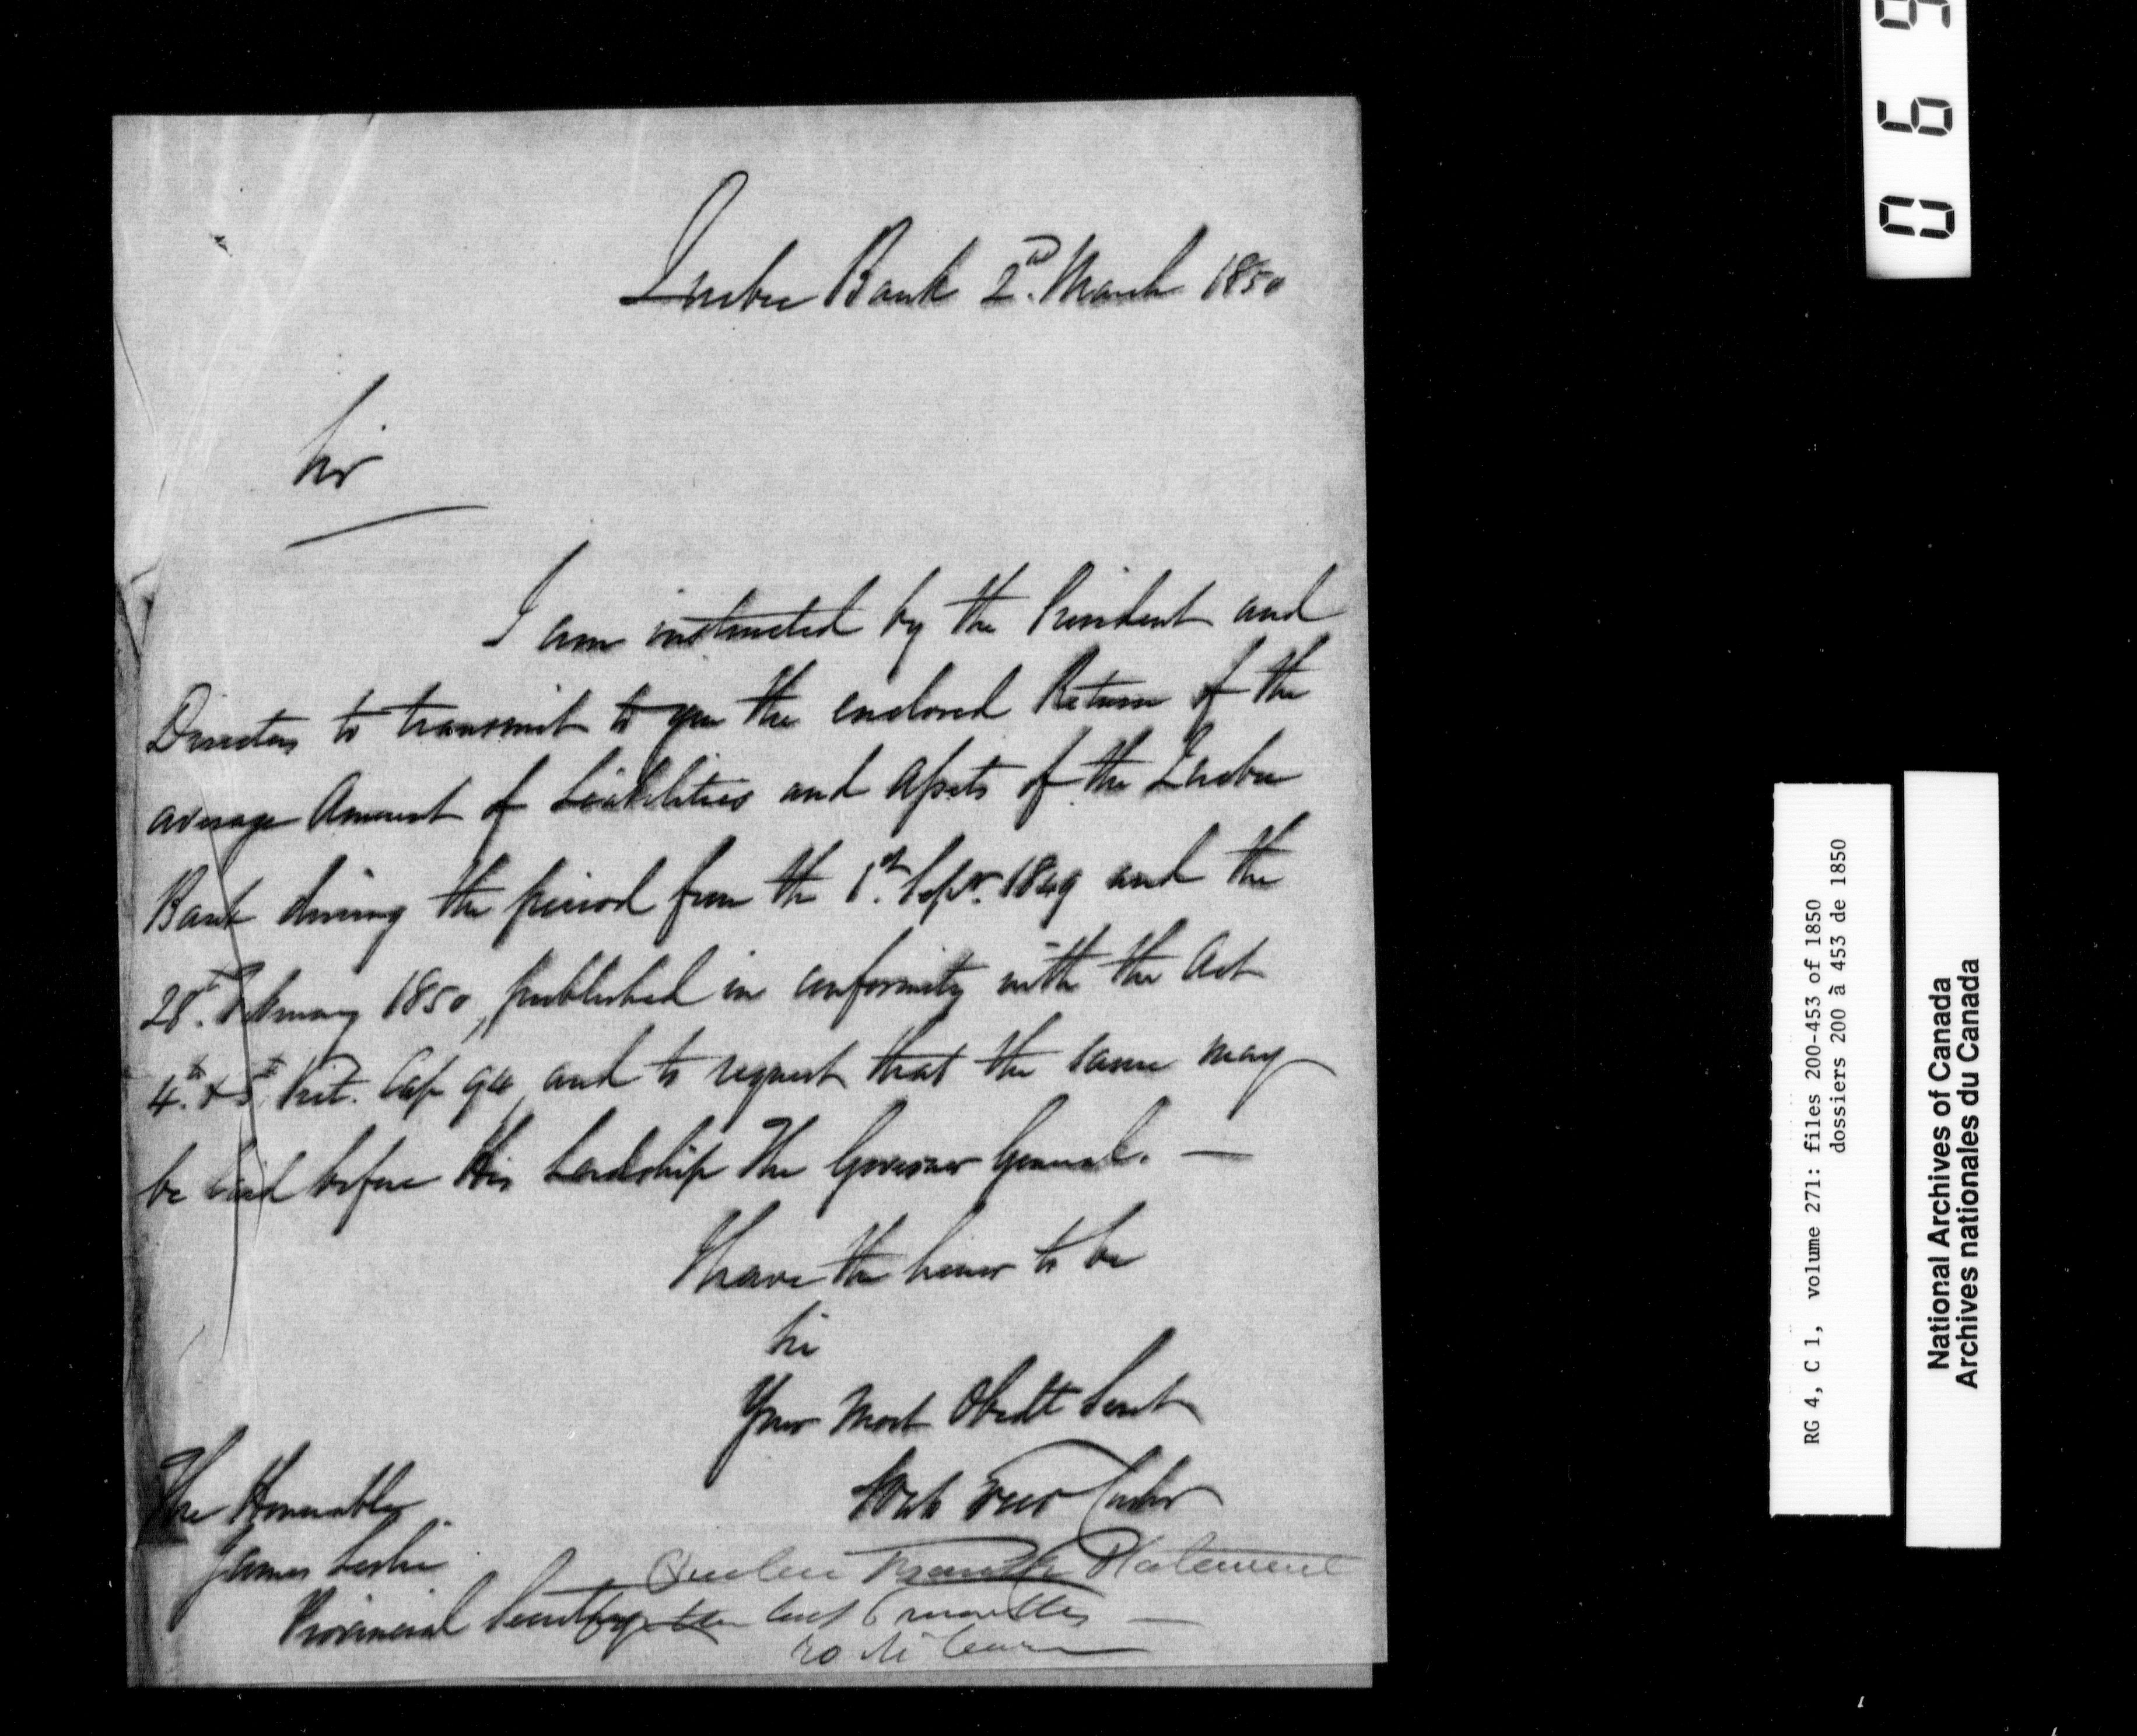 Quebec Bank 2nd. March 1850
Sir
I am instructed by the President and
Directors to transmit to you the enclosed Return of the
average Amount of Liabilities and Assets of the Quebec
Bank during the period from the 1st. Sepr. 1849 and the
28th. February 1850, published in conformity with the Act
4th. & 5th Vict. Cap 94, and to request that the same may
be laid before His Lordship The Governor General. —
I have the honor to be
Sir
Your Most Obedt Servt
Noah Freer Cashr
The Honorable
James Leslie
Provincial Secretary
Quebec Bank Statement
for the last 6 months —
RG 4, C 1, volume 271: files 200-453 of 1850
dossiers 200 à 453 de 1850
National Archives of Canada
Archives nationales du Canada
069